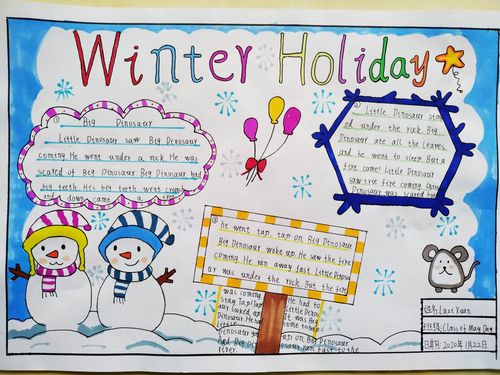 Winter Holiday
① Big Dinosaur
Little Dinosaur saw Big Dinosaur
coming. He went under a rock. He was
scared of Big Dinosaur. Big Dinosaur had
big teeth. His big teeth went crunch
and down came a tree.
② Little Dinosaur stay
ed under the rock. Big
Dinosaur ate all the leaves
and he went to sleep. But a
fire came! Little Dinosaur
saw the fire coming. Little
Dinosaur was scared but
③ he went tap, tap on Big Dinosaur.
Big Dinosaur woke up. He saw the fire
coming. He ran away fast. Little Dinosa
ur was under the rock. But the fire
was coming He had to
stay Tap! Tap Little
ur looked up It was Big
Dinosaur. He come to help
Big Dinosaur
Dinosaur ran fast to the
river.
姓名: Xuan
班级: Class of May Day
日期: 2020年1月22日